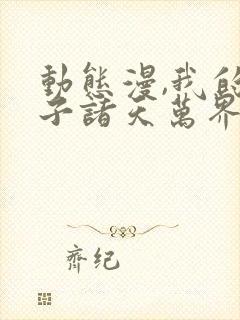 動態漫,我的
子諸天萬界
齊纪